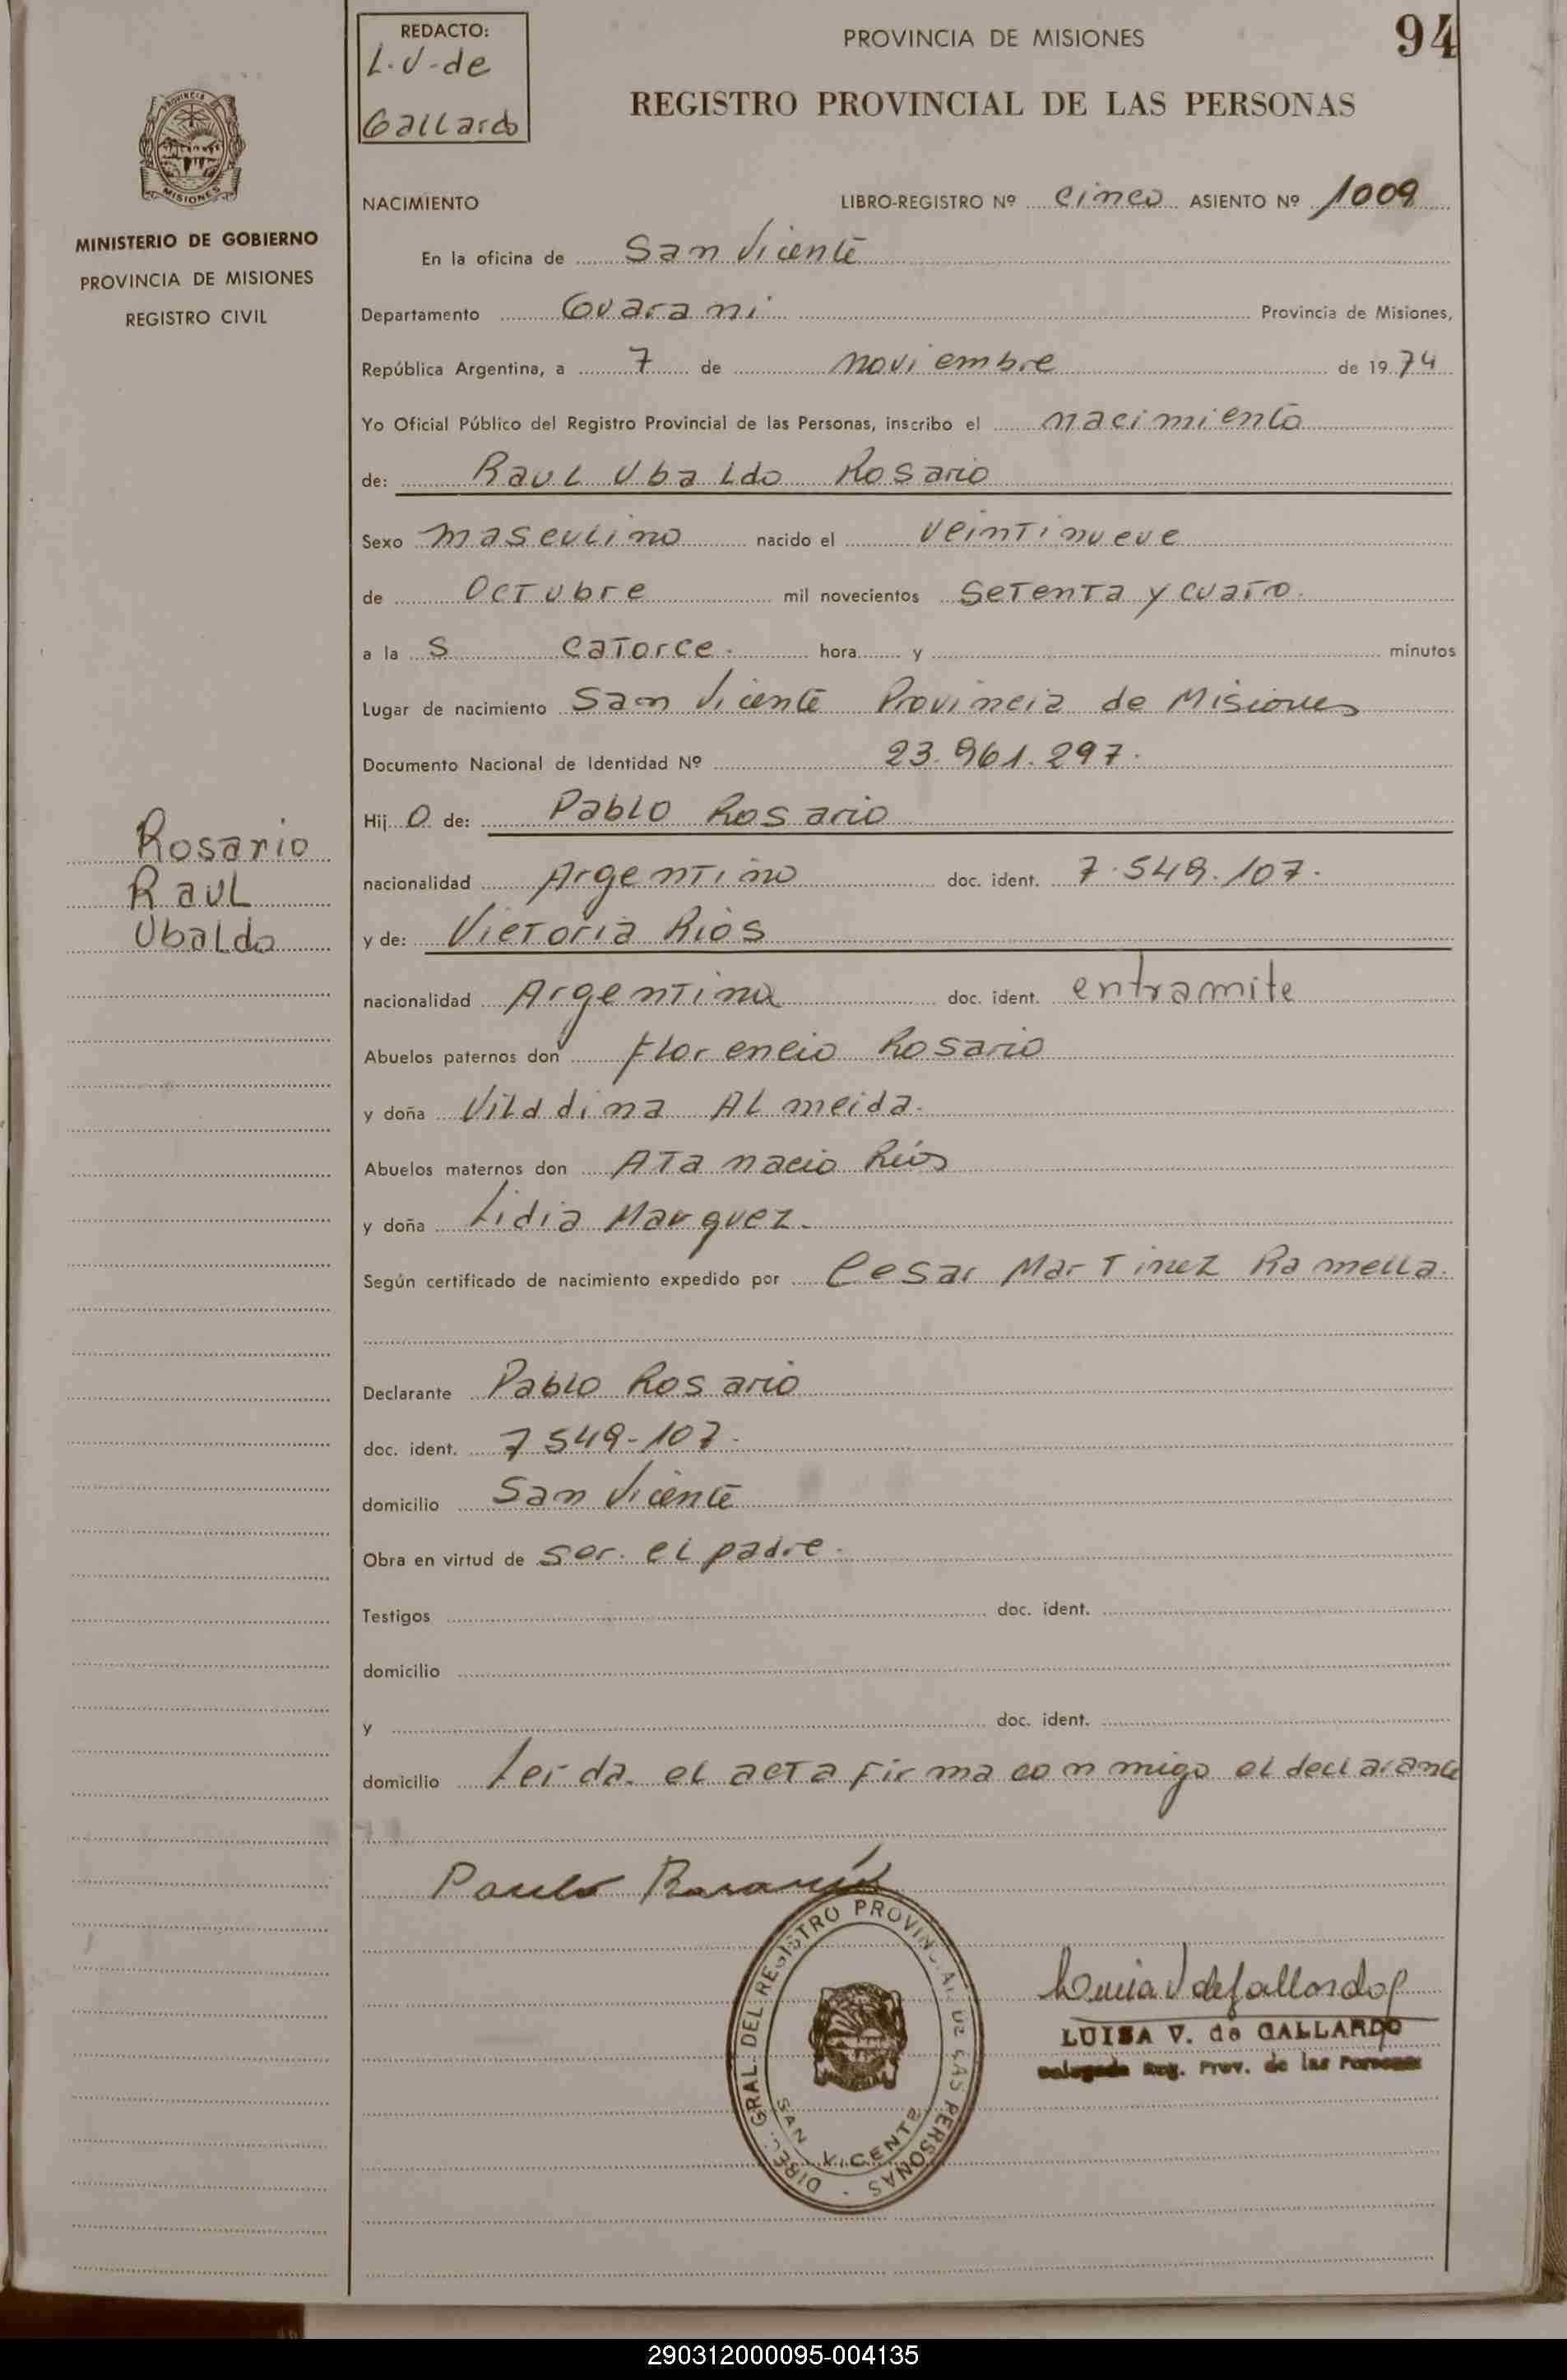 REDACTO:
L.V-de
Gallardo
PROVINCIA DE MISIONES
94
REGISTRO PROVINCIAL DE LAS PERSONAS
PROVINCIA
MISIONES
MINISTERIO DE GOBIERNO
PROVINCIA DE MISIONES
REGISTRO CIVIL
NACIMIENTO LIBRO-REGISTRO Nº cinco ASIENTO Nº 1009
En la oficina de San Vicente
Departamento Guarani Provincia de Misiones,
República Argentina, a 7 de noviembre de 1974
Yo Oficial Público del Registro Provincial de las Personas, inscribo el nacimiento
de: Raul Ubaldo Rosario
Sexo masculino nacido el veintinueve
de Octubre mil novecientos Setenta y cuatro.
a la S catorce. hora y minutos
Lugar de nacimiento San Vicente Provincia de Misiones
Documento Nacional de Identidad Nº 23.961.297.
Hij O de: Pablo Rosario
nacionalidad Argentino doc. ident. 7.549.107.
y de: Victoria Rios
nacionalidad Argentina doc. ident. entramite
Abuelos paternos don Florencio Rosario
y doña Vilddina Almeida.
Abuelos maternos don Atanacio Rios
y doña Lidia Marquez.
Según certificado de nacimiento expedido por Cesar Martinez Ramella.
Declarante Pablo Rosario
doc. ident. 7549-107.
domicilio San Vicente
Obra en virtud de ser. el padre.
Testigos doc. ident.
domicilio
y doc. ident.
domicilio Leida. el acta firma conmigo el declarante
Rosario
Raul
Ubaldo
Pablo Rosario
DIREC. GRAL. DEL REGISTRO PROVINCIAL DE LAS PERSONAS -
SAN VICENTE
Luisa V de Gallardo
LUISA V. de GALLARDO
Delegada Reg. Prov. de las Personas
290312000095-004135